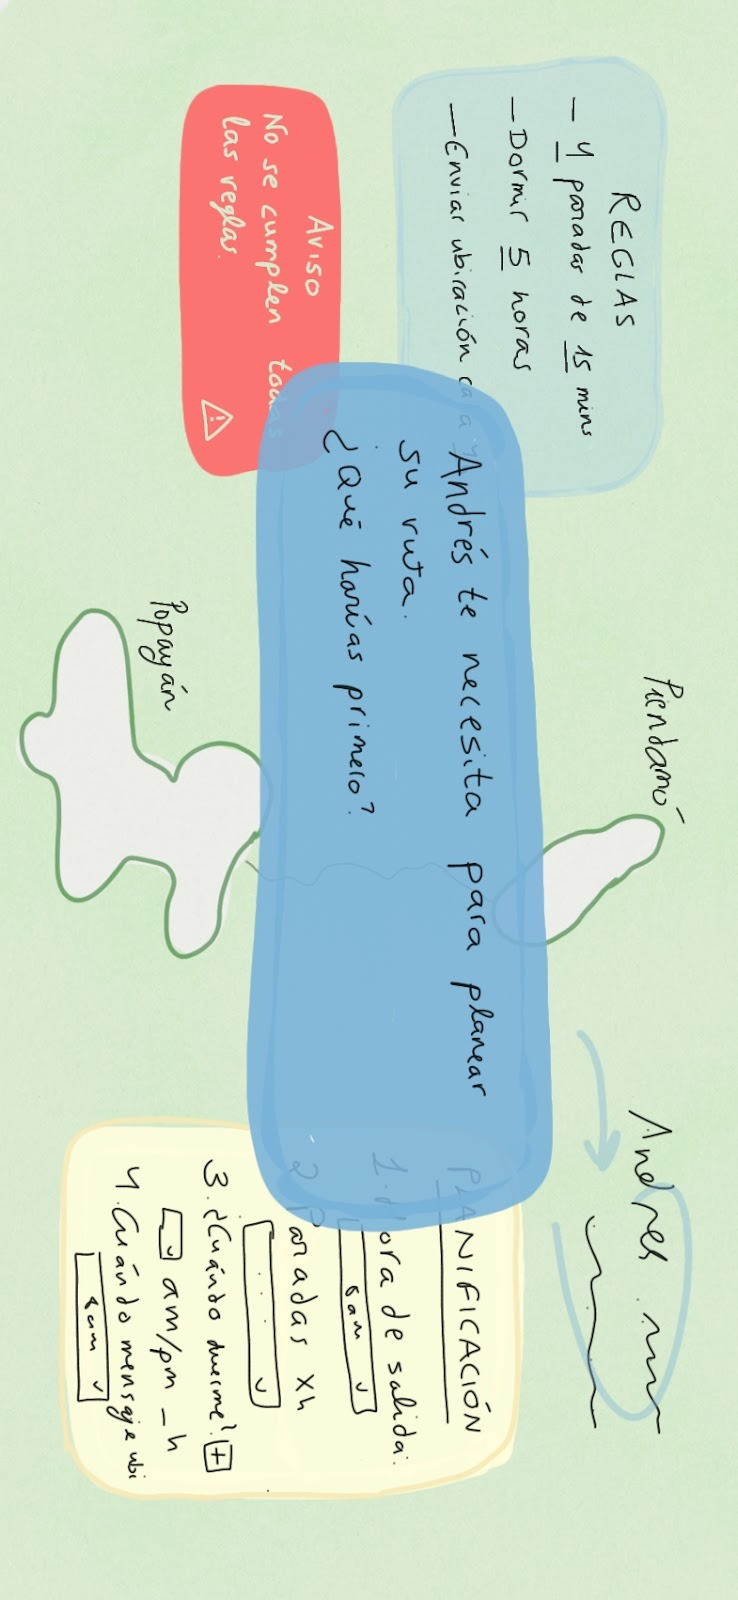 REGLAS
- 4 paradas de 15 mins
- Dormir 5 horas
- Enviar ubicación
Aviso
No se cumplen todas
las reglas.
Andrés te necesita para planear
su ruta.
¿Qué harías primero?
Piendamó
Popayán
Andrés
PLANIFICACIÓN
1. Hora de salida:
8am
2 Paradas xh
....
3. ¿Cuándo duerme? +
am/pm _ h
4. Cuándo mensaje ubi
8am